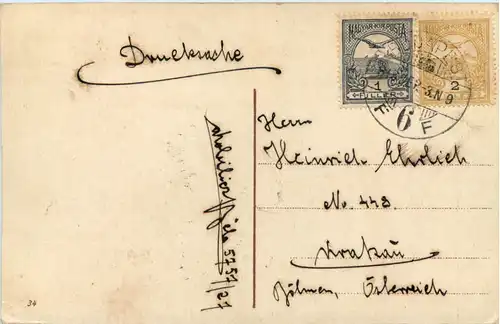 Drucksache
MAGYAR KIR. POSTA
1
FILLER
2
6
F
Herrn
Heinrich Ehrlich
No. 448.
Krakau
Böhmen, Österreich
5251/27
34